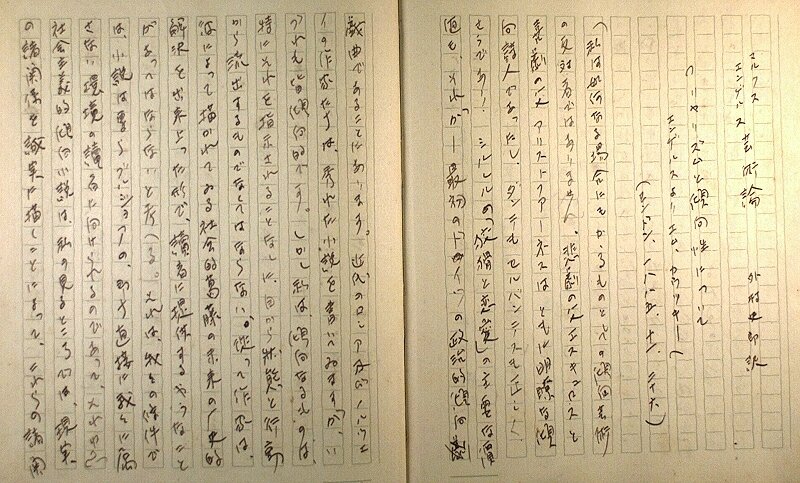 マルクス エンゲルス 芸術論 外村史郎訳
「リヤリズムと傾向性について」
エンゲルスよりエム・カウツキーへ
(ロンドン、一八八五、十一、二十六)
(私は如何なる場合にもかゝるものとしての傾向芸術
の反対者ではありません。悲劇の父エスキロスと
喜劇の父アリストファーネスはともに明瞭な傾
向詩人であつたし、ダンテもセルバンテスも正しく
さうであり! シルレルの「狡猾と恋愛」の主要な価
値も、それが―最初のドイツの政治的傾向
戯曲であることにあります。近代のロシア及びノールウェ
イの作家たちは、秀れた小説を書いてゐますが、い
づれも皆傾向的です。しかし私は、傾向なるものは、
特にそれを指示されることなしに、自から状態と行動
から流出するものでなくてはならない。従つて作家は、
彼によつて描かれてゐる社会的葛藤の未来の「史的
解決を出来上つた形で、読者に提供するやうなこと
があつてはならないと考へる。それに、我々の條件で
は、小説は専らブルジョアの、即ち直接に我々に属
さない環境の読者に向けられるのであつて、それゆえ
社会主義的傾向小説は、私の見るところでは、現実
の諸関係を誠実に描くことによつて、これらの諸関